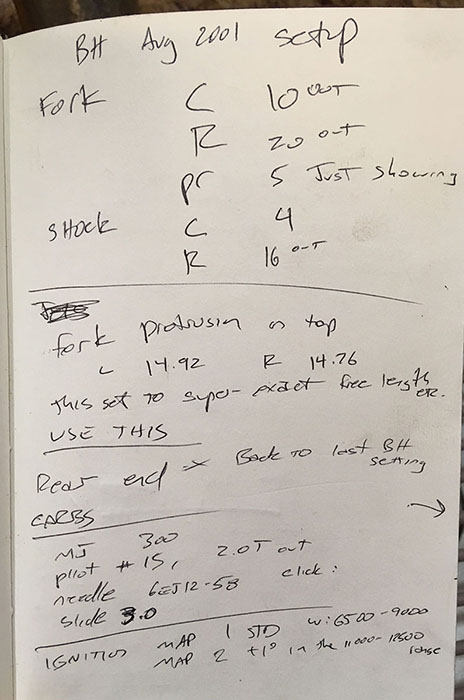 BH Aug 2001 setup
Fork C 10 OUT
R 20 out
pr 5 Just showing
SHock C 4
R 16 out
fork protrusion on top
L 14.92 R 14.76
this set to super-exact free length etc.
USE THIS
Rear end => Back to last BH setting
CARBS →
MJ 300
pilot #15, 2.0T out
needle 6EJ12-58 click:
slide 3.0
IGNITION MAP 1 STD w: 6500-9000
MAP 2 +1° in the 11000-12500 range